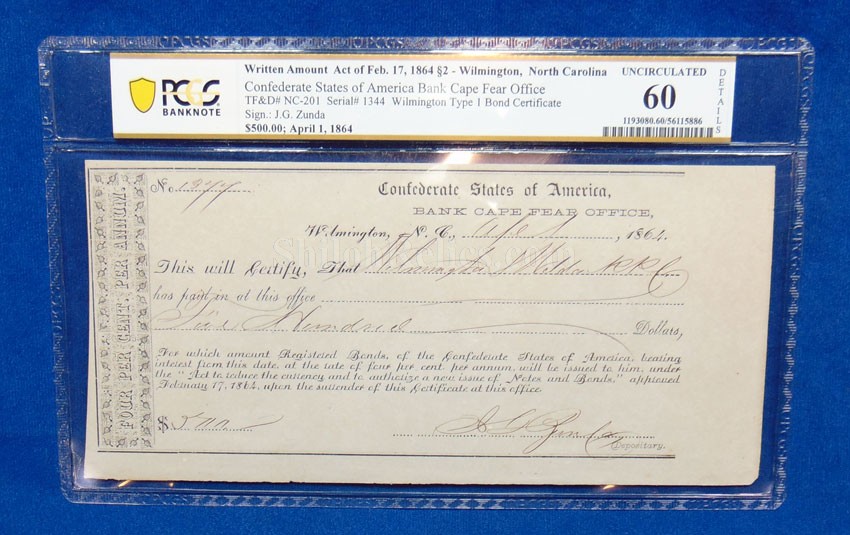 PCGS
BANKNOTE
Written Amount Act of Feb. 17, 1864 §2 - Wilmington, North Carolina
Confederate States of America Bank Cape Fear Office
TF&D# NC-201 Serial# 1344 Wilmington Type 1 Bond Certificate
Sign.: J.G. Zunda
$500.00; April 1, 1864
UNCIRCULATED
60
DETAILS
1193080.60/56115886
FOUR PER CENT. PER ANNUM.
No.
Confederate States of America,
BANK CAPE FEAR OFFICE,
Wilmington, N. C., 1864.
This will Certify, That Wilmington & Weldon R R Co
has paid in at this office
Five Hundred Dollars,
For which amount Registered Bonds, of the Confederate States of America, bearing
interest from this date, at the rate of four per cent. per annum, will be issued to him, under
the "Act to reduce the currency and to authorize a new issue of Notes and Bonds," approved
February 17, 1864, upon the surrender of this Certificate at this office.
$ 500
Depositary.